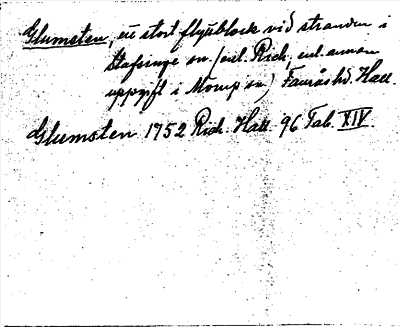 Glumsten, ett stort flyttblock vid stranden i
Stafsinge sn (enl. Rich, enl. annan
uppgift i Morup sn) Faurås hd. Hall.
Glumsten 1752 Rich. Hall. 96 Tab. XIV.